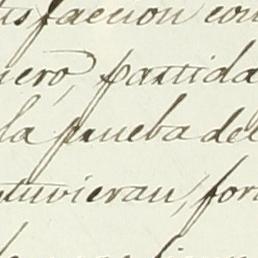 tisfaccion con
nero, partida
la prueba de
tuvieran, for